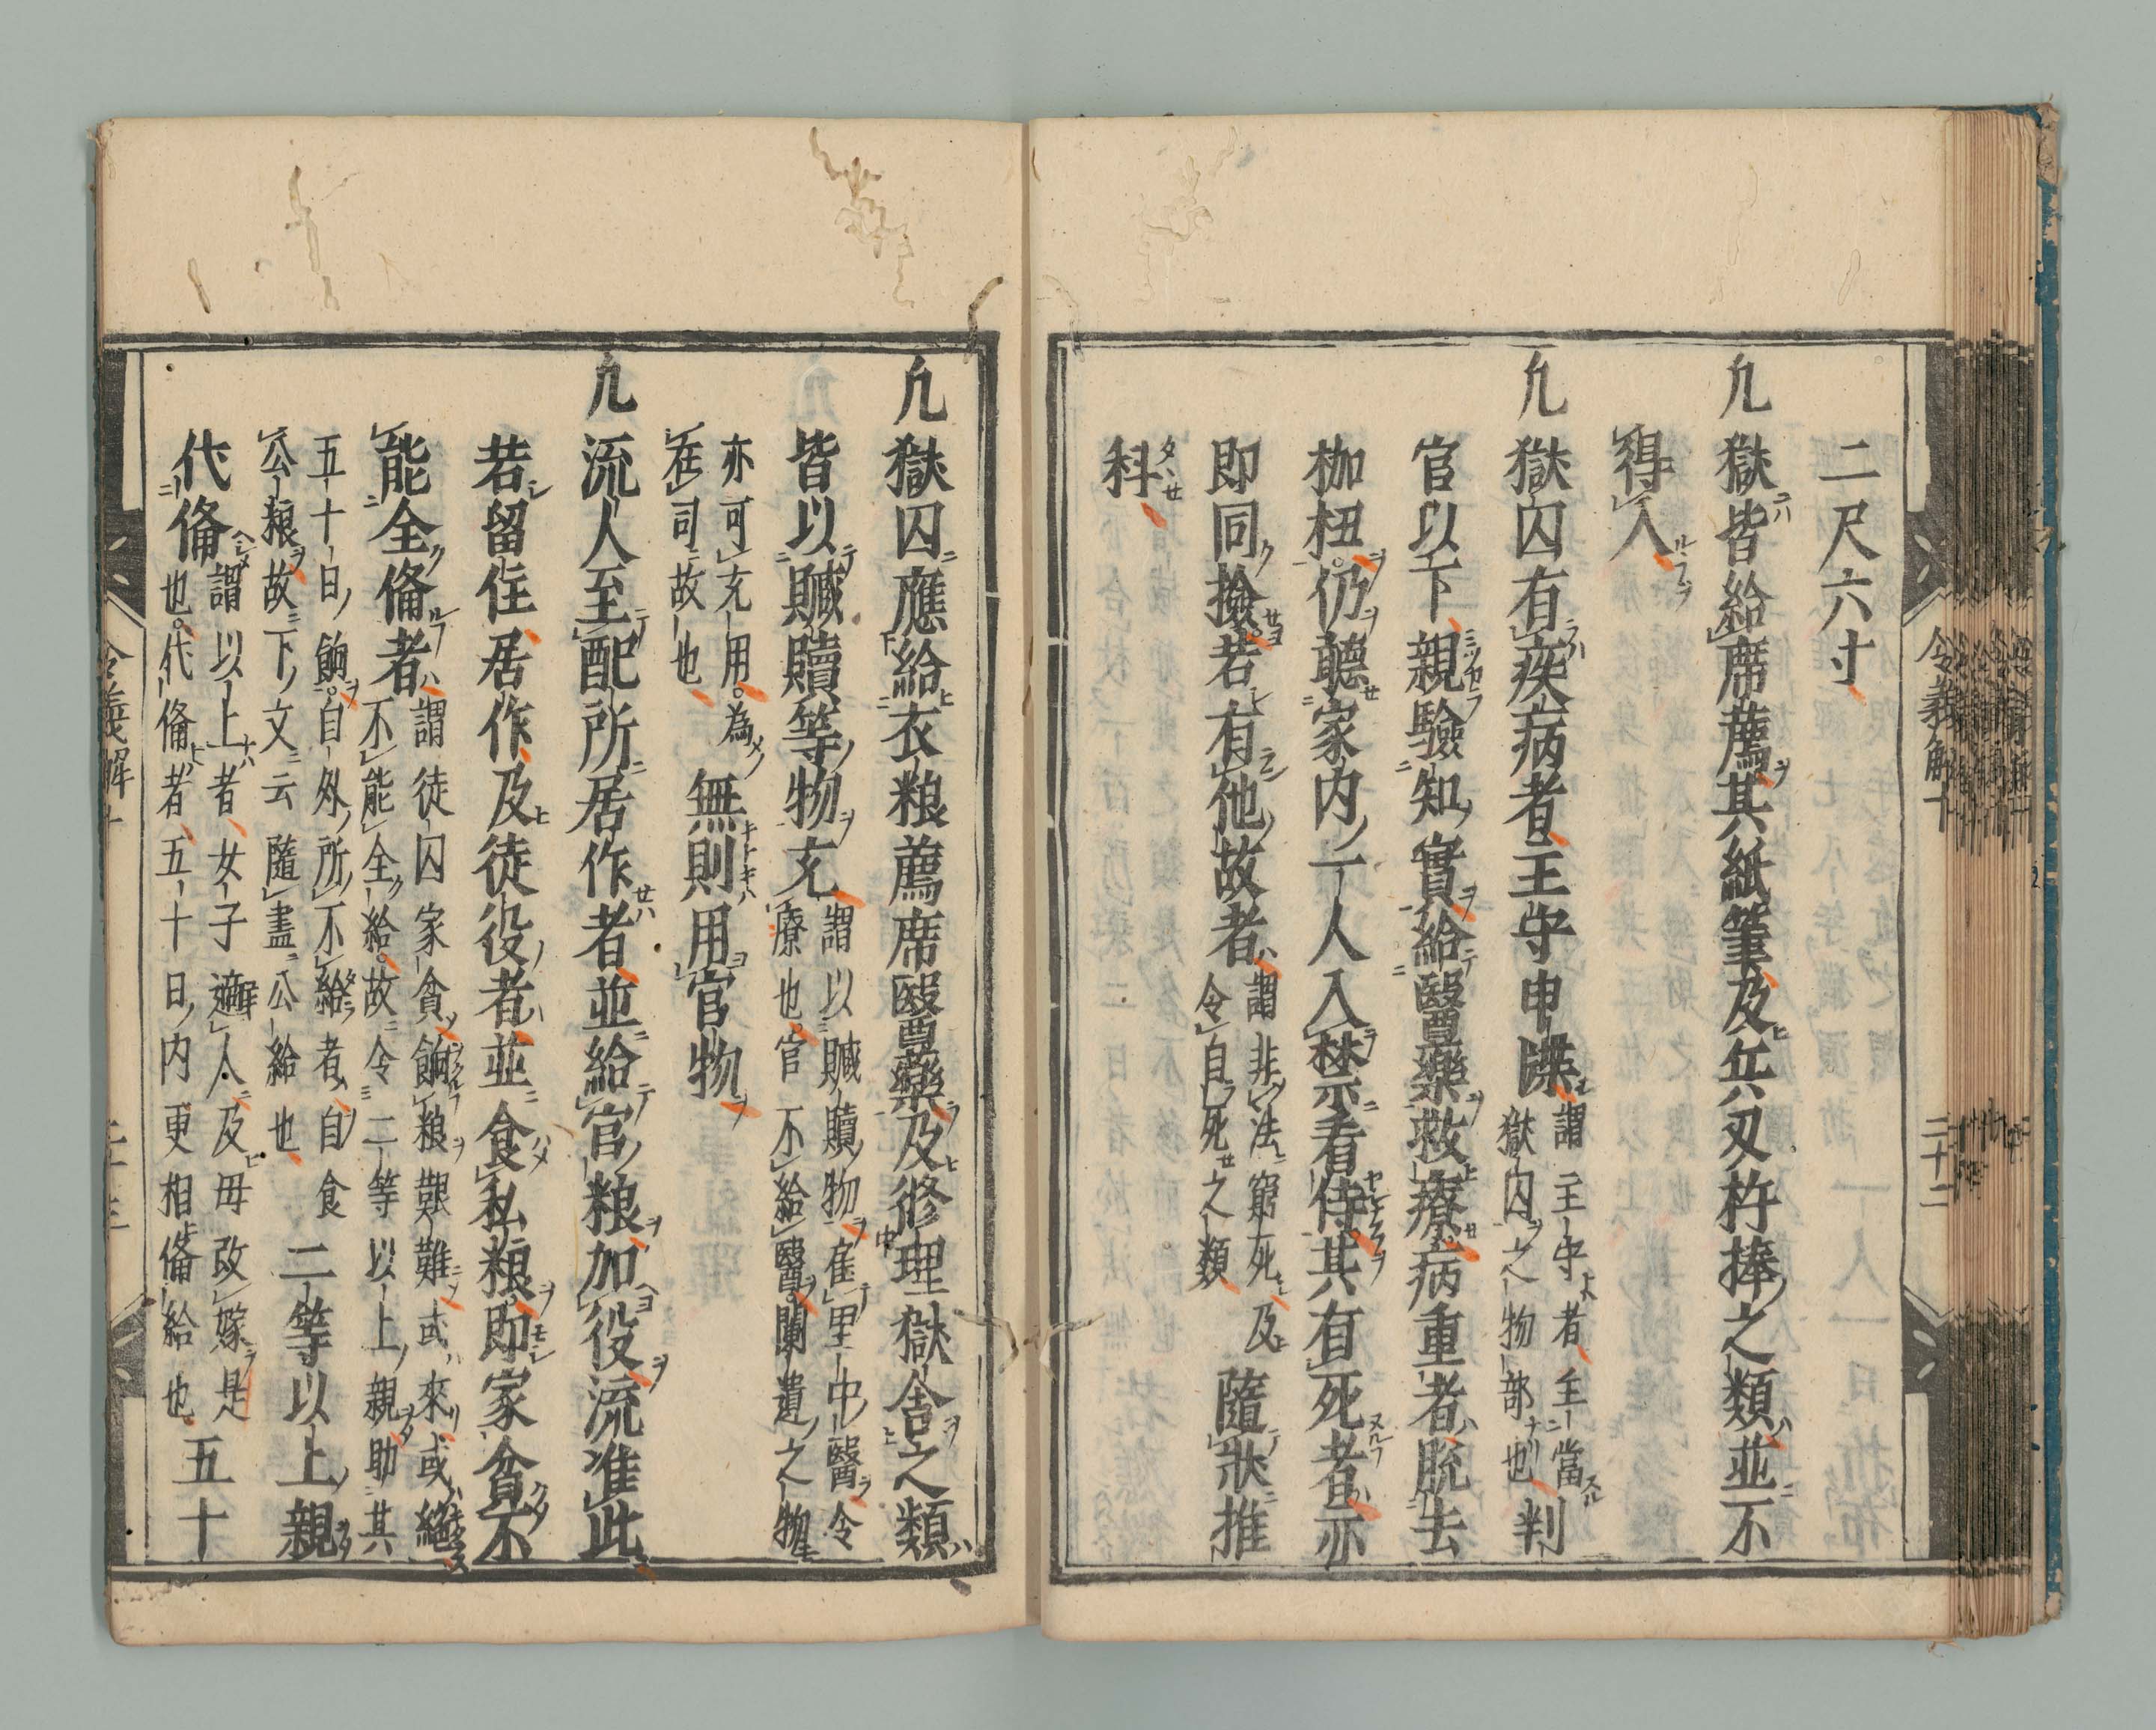 二尺六寸
凡獄皆給席薦其紙筆及兵刃杵捧之類並不
得入
凡獄囚有疾病者主守申牒
謂主守者主當
獄囚之物部也
判
官以下親驗知實給醫藥救療病重者脱去
枷杻仍聽家内一人入禁看侍其有死者亦
即同撿若有他故者
謂非法窮死及
令自死之類
隨狀推
科
令義解十
二十二
凡獄囚應給衣粮薦席醫藥及修理獄舎之類
皆以贓贖等物充
謂以贓贖物雇里中醫令
療也官不給醫闌遺之物
亦可充用為
在司故也
無則用官物
凡流人至配所居作者並給官粮加役流准此
若留住居作及徒役者並食私粮即家貧不
能全俻者
謂徒囚家貧餉粮艱難或來或絶
不能全給故令二等以上親助其
五十日餉自外所不給者自食
公粮故下文云隨盡公給也
二等以上親
代俻
謂以上者女子適人及母改嫁是
也代俻者五十日内更相俻給也
五十